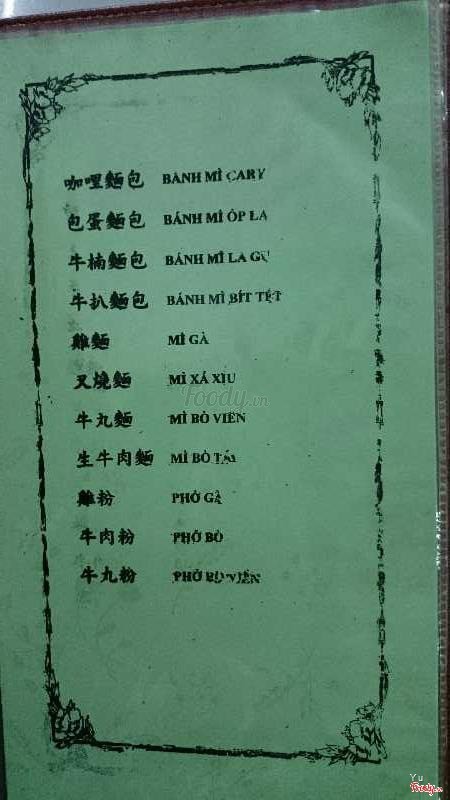 咖哩麵包 BÁNH MÌ CARY
包蛋麵包 BÁNH MÌ ÓP LA
牛楠麵包 BÁNH MÌ LA GU
牛扒麵包 BÁNH MÌ BÍT TẾT
雞麵 MÌ GÀ
叉燒麵 MÌ XÁ XỊU
foody.vn
牛丸麵 MÌ BÒ VIÊN
生牛肉麵 MÌ BÒ TÁI
雞粉 PHỞ GÀ
牛肉粉 PHỞ BÒ
牛丸粉 PHỞ BÒ VIÊN
Yu
Foody.vn